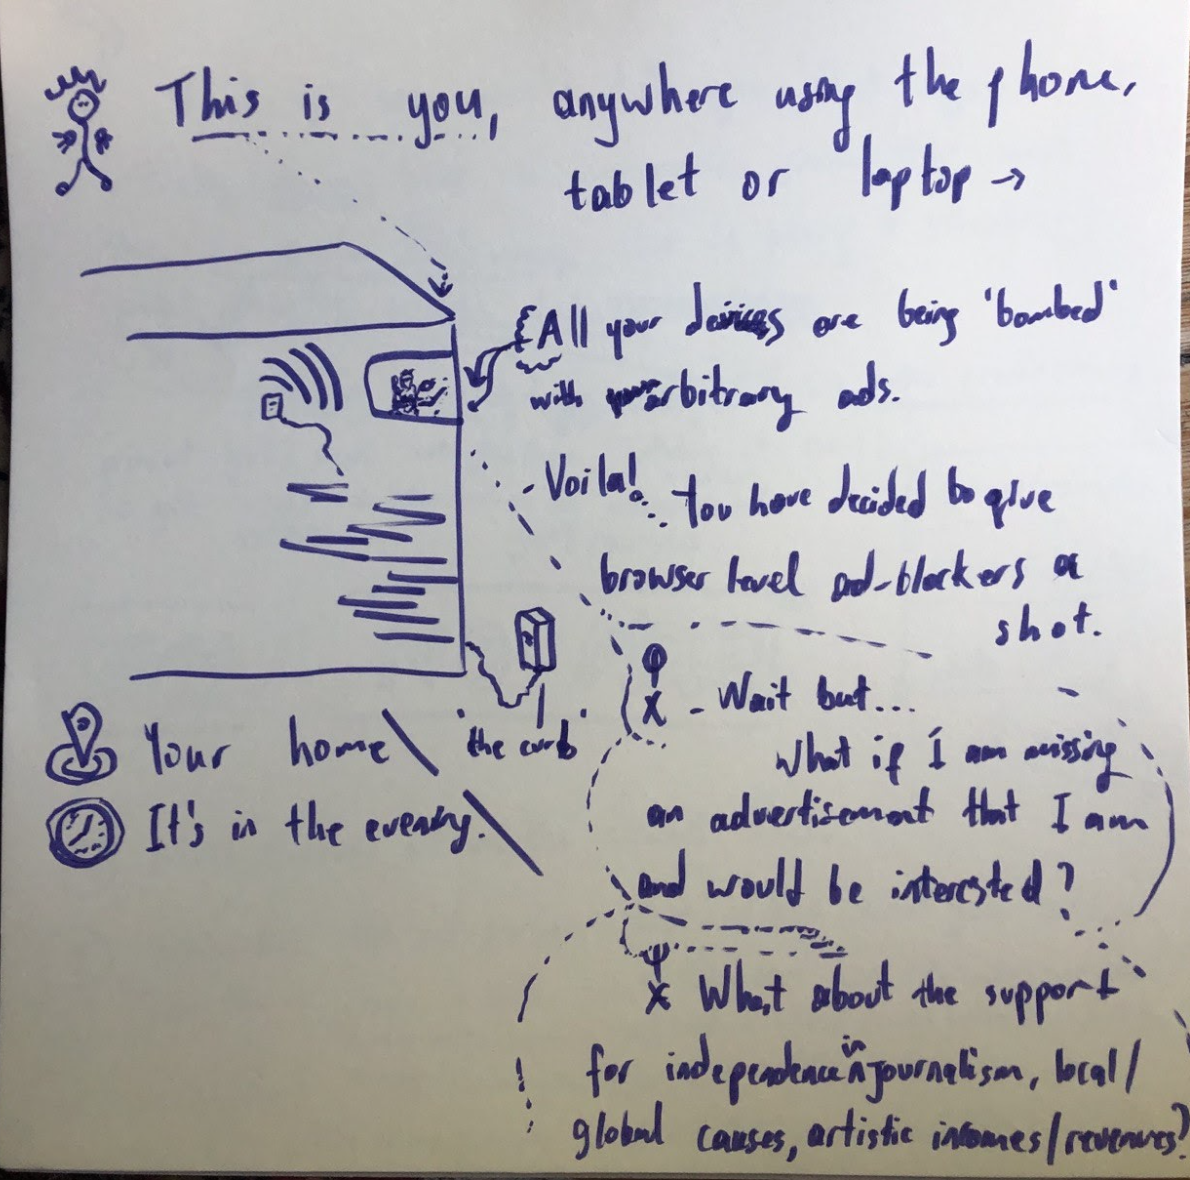 This is you, anywhere using the phone,
tablet or laptop →
All your devices are being 'bombed'
with arbitrary ads.
- Voila! You have decided to give
browser level ad-blockers a
shot.
- Wait but...
What if I am missing
an advertisement that I am
and would be interested?
What about the support
for independence in journalism, local/
global causes, artistic incomes/revenues?
Your home
the curb
It's in the evening.